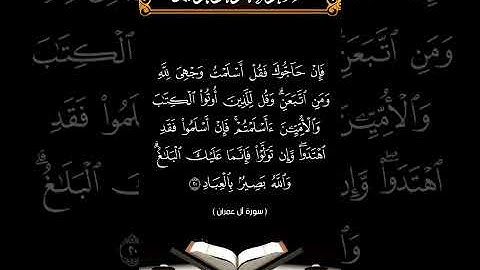 فَإِنۡ حَآجُّوكَ فَقُلۡ أَسۡلَمۡتُ وَجۡهِيَ لِلَّهِ
وَمَنِ ٱتَّبَعَنِۗ وَقُل لِّلَّذِينَ أُوتُواْ ٱلۡكِتَٰبَ
وَٱلۡأُمِّيِّـۧنَ ءَأَسۡلَمۡتُمۡۚ فَإِنۡ أَسۡلَمُواْ فَقَدِ
ٱهۡتَدَواْۖ وَّإِن تَوَلَّوۡاْ فَإِنَّمَا عَلَيۡكَ ٱلۡبَلَٰغُۗ
وَٱللَّهُ بَصِيرُۢ بِٱلۡعِبَادِ ٢٠
( سورة آل عمران )